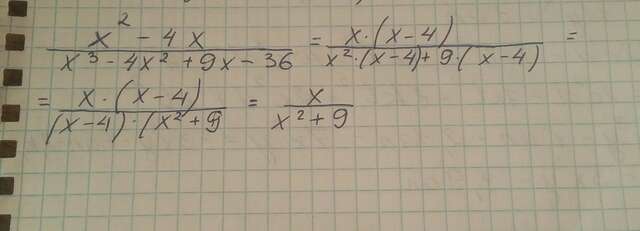 x² - 4x / x³ - 4x² + 9x - 36 = x·(x-4) / x²·(x-4) + 9·(x-4) =
= x·(x-4) / (x-4)·(x²+9) = x / x²+9